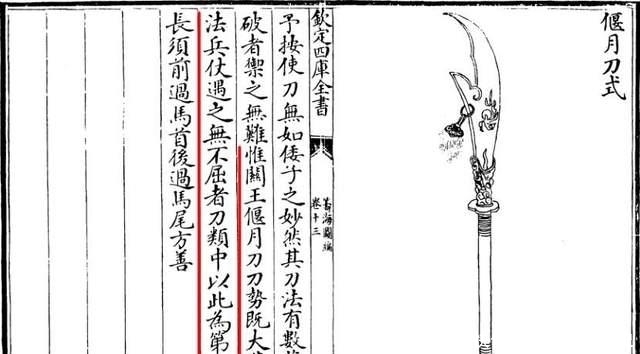 偃月刀式
欽定四庫全書
籌海圖編
卷十三
予按使刀無如倭子之妙然其刀法有數
破者禦之無難惟關王偃月刀刀勢既大
法兵仗遇之無不屈者刀類中以此為第
長須前過馬首後過馬尾方善